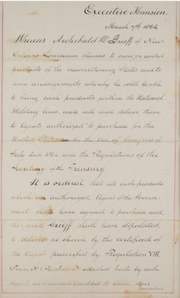 Executive Mansion,
March 7th 1865
Whereas Archibald M. Druff of New
Orleans Louisiana claims to own or control
products of the insurrectionary States and to
have arrangements whereby he will be able
to bring such products within the National
Military lines, and sell and deliver them
to Agents authorized to purchase for the
United States under the Act of Congress of
July 2nd 1864 and the Regulations of the
Secretary of the Treasury
It is ordered that all such products
which an authorized Agent of the Govern-
ment shall have agreed to purchase and the
said shall have stipulated
to deliver as shown by the certificate of
the Agent prescribed by Regulation VIII
Form No 1
Agent